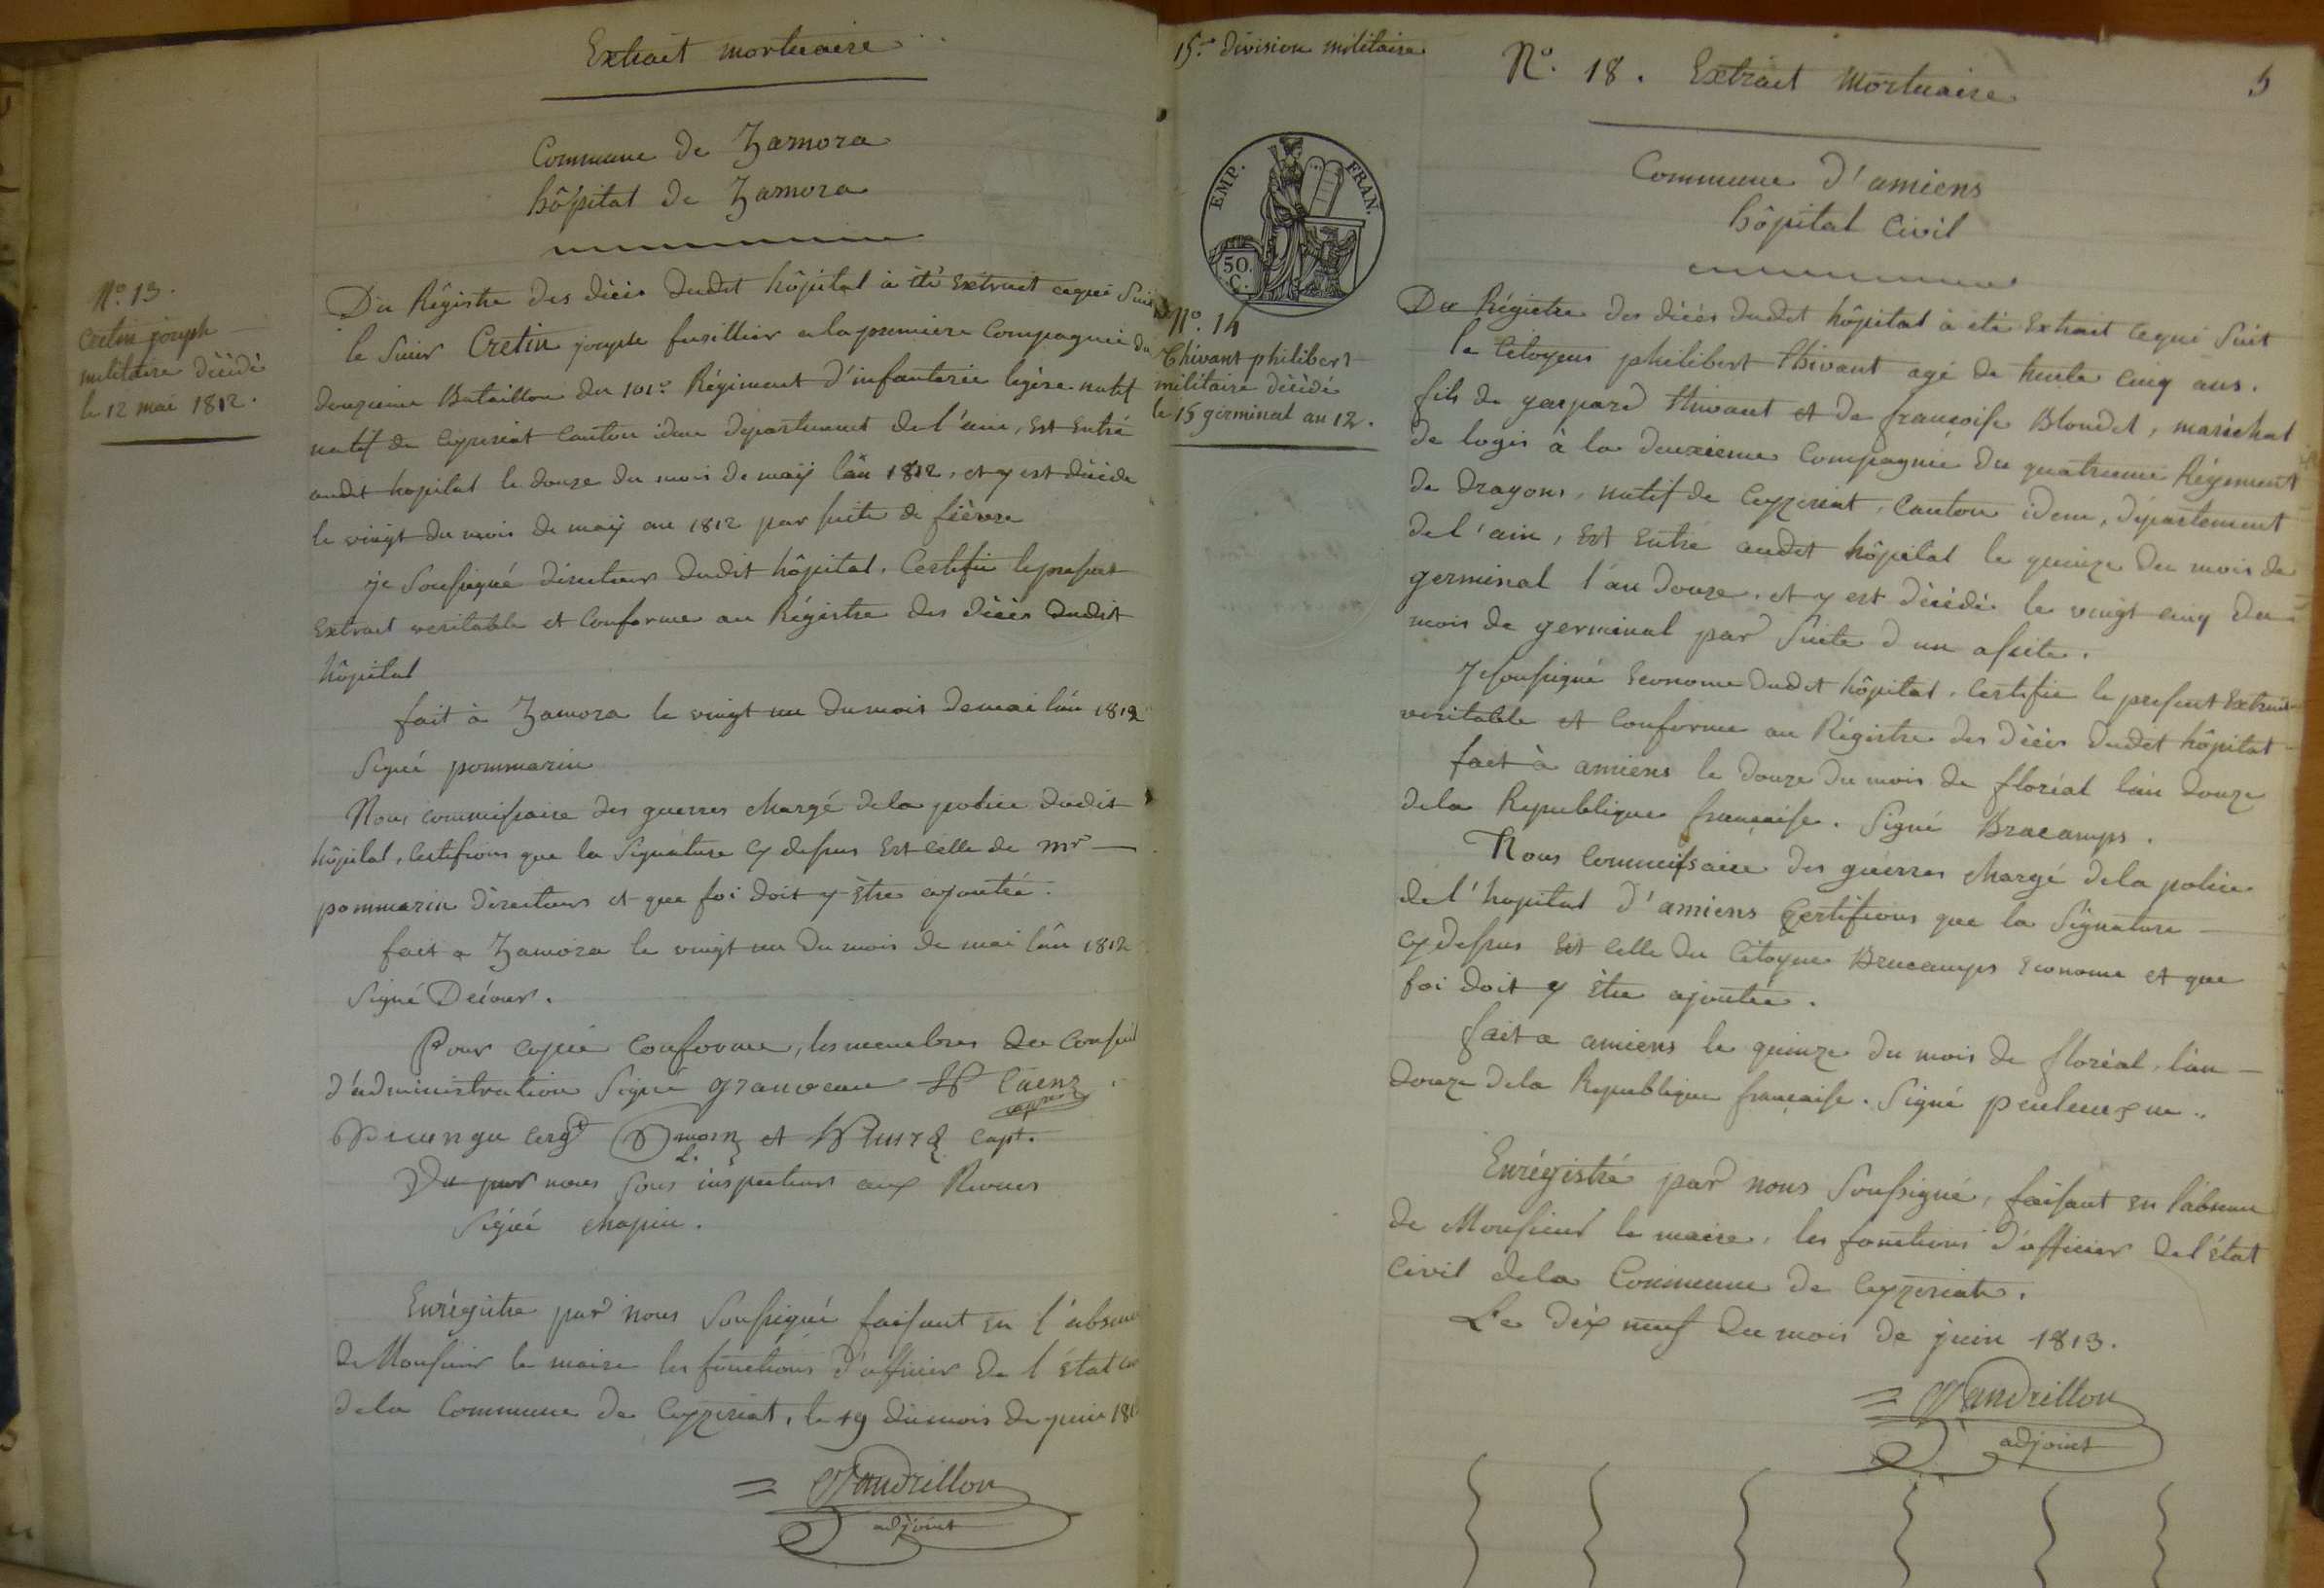 Extrait mortuaire
Commune de Zamora
hôpital de Zamora
N.º 13.
Cretin joseph
militaire décédé
le 12 mai 1812.
Du Régistre des décès dudit hôpital à été Extrait cequi Suit
le Sieur Cretin joseph fusillier a la premiere Compagnie du
douzieme Bataillon du 101.e Régiment d'infanterie legère natif
natif de Ceyzeriat Canton idem departement de l'ain, Est Entré
audit hopital le douze du mois de maÿ l'an 1812, et y est décédé
le vingt du mois de maÿ an 1812 par suite de fièvre
je Soussigné directeur dudit hôpital, Certifie le present
Extrait veritable et Conforme au Régistre des décès dudit
hôpital
fait à Zamora le vingt un du mois demai l'an 1812
Signé pommarin
Nous commissaire des guerres chargé dela police dudit
hôpital, Certifions que la Signature cy dessus Est Celle de mr
pommarin directeur et que foi doit y Être ajoutée.
fait a Zamora le vingt un du mois de mai l'an 1812
Signé Décour.
Pour Copie Conforme, les membres du Conseil
d'administration Signé
et Capt.
Vu par nous Sous inspecteur aux Revues
Signé chapin.
Enrégistré par nous Soussigné faisant en l'absence
de Monsieur le maire les fonctions d'officier de l'état
dela Commune de Ceyzeriat, le 19 du mois de juin
Vandrillon
adjoint
15.e division militaire
Nº. 18. Extrait Mortuaire
5
EMP. FRAN.
50.
C.
Commune d'amiens
hôpital Civil
Nº. 14
Thivant philibert
militaire décédé
le 15 germinal an 12.
Du Régistre des décès dudit hôpital à été Extrait cequi Suit
le Citoyen philibert thivant agé de trente cinq ans.
fils de gaspard thivant et de françoise Blondel, maréchal
de logis à la deuxieme Compagnie du quatrieme Régiment
de Dragons, natif de Ceyzeriat, Canton idem, département
de l'ain, Est Entré audit hôpital le quinze du mois de
germinal l'an douze, et y est décédé le vingt cinq du
mois de germinal par Suite d'un
Je soussigné Econome dudit hôpital, Certifie le present Extrait
veritable et Conforme au Régistre des décès dudit hôpital
fait à amiens le douze du mois de floréal l'an douze
dela Republique française. Signé Bracamps.
Nous Commissaire des guerres chargé dela police
de l'hopital d'amiens Certifions que la Signature
cy dessus Est Celle du Citoyen Bracamps Econome et que
foi doit y Être ajoutée.
fait a amiens le quinze du mois de floréal, l'an
douze dela Republique française. Signé
Enrégistré par nous Soussigné, faisant en l'absence
de Monsieur le maire, les fonctions d'officier de l'état
Civil dela Commune de Ceyzeriat.
Le dix neuf du mois de juin 1813.
Vandrillon
adjoint